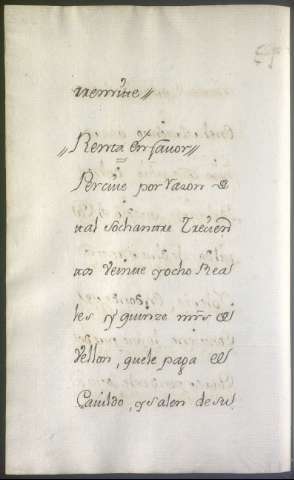 Renta en favor
Perciue por razon de
tal sochantre Trecien
tos veinte y ocho Rea
les y quinze mrs de
vellon, que le paga el
Cauildo, y salen de sus